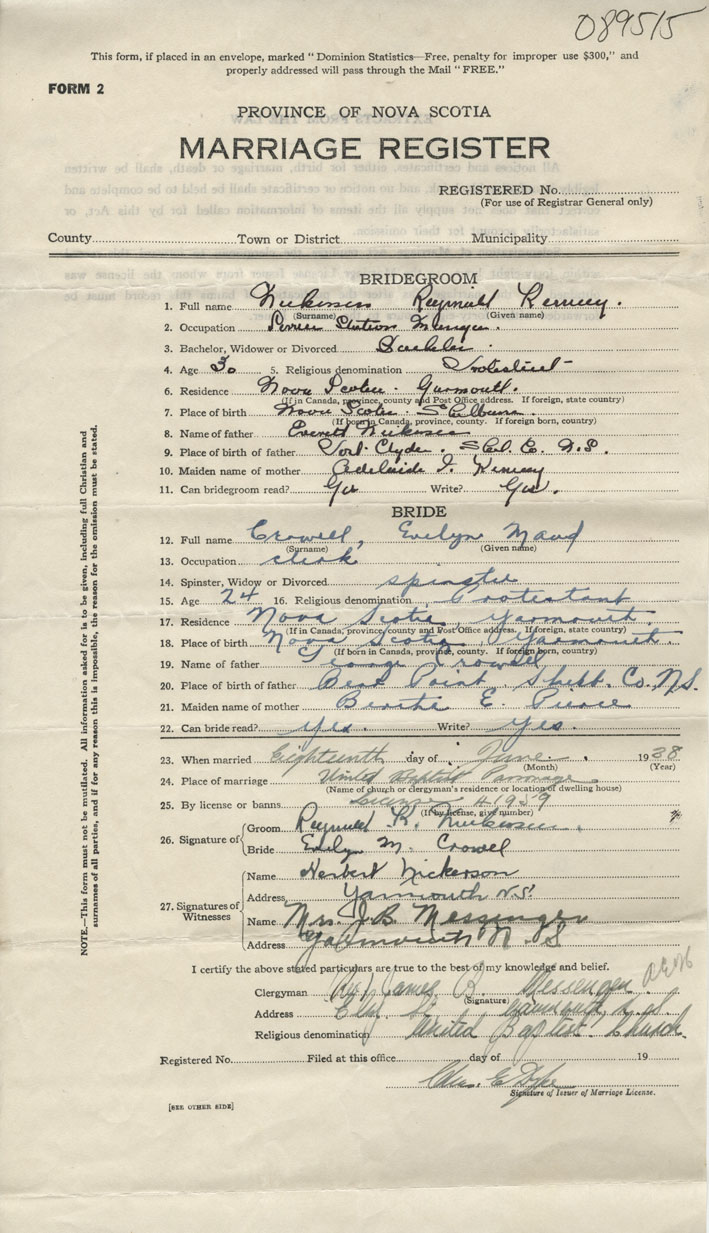 089515
This form, if placed in an envelope, marked "Dominion Statistics—Free, penalty for improper use $300," and
properly addressed will pass through the Mail "FREE."
FORM 2
PROVINCE OF NOVA SCOTIA
MARRIAGE REGISTER
REGISTERED No.
(For use of Registrar General only)
County Town or District Municipality
BRIDEGROOM
1. Full name Nickerson Reginald Kenney.
(Surname) (Given name)
2. Occupation Service Station Manager
3. Bachelor, Widower or Divorced Bachelor.
4. Age 30 5. Religious denomination Protestant
6. Residence Nova Scotia. Yarmouth.
(If in Canada, province, county and Post Office address. If foreign, state country)
7. Place of birth Nova Scotia Shelburne.
(If born in Canada, province, county. If foreign born, country)
8. Name of father Everett Nickerson
9. Place of birth of father Port Clyde. Shel. C. N.S.
10. Maiden name of mother Adelaide I. Kenney
11. Can bridegroom read? Yes Write? Yes.
BRIDE
12. Full name Crowell, Evelyn Maud
(Surname) (Given name)
13. Occupation clerk
14. Spinster, Widow or Divorced spinster
15. Age 24 16. Religious denomination Protestant
17. Residence Nova Scotia, Yarmouth.
(If in Canada, province, county and Post Office address. If foreign, state country)
18. Place of birth Nova Scotia, Yarmouth.
(If born in Canada, province, county. If foreign born, country)
19. Name of father George Crowell
20. Place of birth of father Bear Point Shelb. Co. N.S.
21. Maiden name of mother E. Pierce
22. Can bride read? Yes. Write? Yes.
23. When married Eighteenth day of June 1938
(Month) (Year)
24. Place of marriage United Baptist Parsonage
(Name of church or clergyman's residence or location of dwelling house)
25. By license or banns License 41959
(If by license, give number)
26. Signature of Groom Reginald K. Nickerson.
Bride Evelyn M. Crowell
27. Signatures of Witnesses Name Herbert Nickerson
Address Yarmouth N.S.
Name Mrs. J. B Messenger
Address Yarmouth N. S
I certify the above stated particulars are true to the best of my knowledge and belief.
Clergyman (Rev) James B. Messenger
(Signature)
Address St. Yarmouth, N.S.
Religious denomination United Baptist Church
Registered No. Filed at this office day of 19
Chas. E Dyke
Signature of Issuer of Marriage License.
[SEE OTHER SIDE]
NOTE.—This form must not be mutilated. All information asked for is to be given, including full Christian and
surnames of all parties, and if for any reason this is impossible, the reason for the omission must be stated.